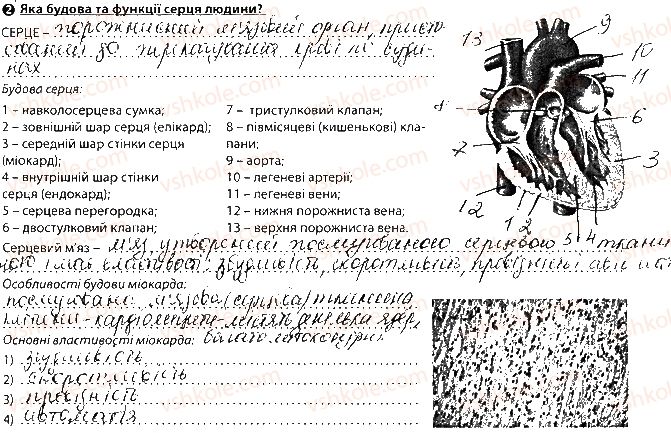 2 Яка будова та функції серця людини?
СЕРЦЕ – порожнистий м'язовий орган, присто-
сований до перекачування крові по суди-
нах
Будова серця:
1 – навколосерцева сумка;
2 – зовнішній шар серця (епікард);
3 – середній шар стінки серця
(міокард);
4 – внутрішній шар стінки
серця (ендокард);
5 – серцева перегородка;
6 – двостулковий клапан;
7 – тристулковий клапан;
8 – півмісяцеві (кишенькові) кла-
пани;
9 – аорта;
10 – легеневі артерії;
11 – легеневі вени;
12 – нижня порожниста вена;
13 – верхня порожниста вена.
13
9
10
11
8
6
7
3
12
1 2
5
4
Серцевий м'яз – м'яз, утворений посмугованою серцевою ткани
ною і має властивості збудливість скоротливість провідність
Особливості будови міокарда:
посмугована м'язова (серцева) тканина
клітини - кардіоміоцити - містять декілька ядер,
Основні властивості міокарда: багато мітохондрій
1) збудливість
2) скоротливість
3) провідність
4) автоматія
vshkole.com